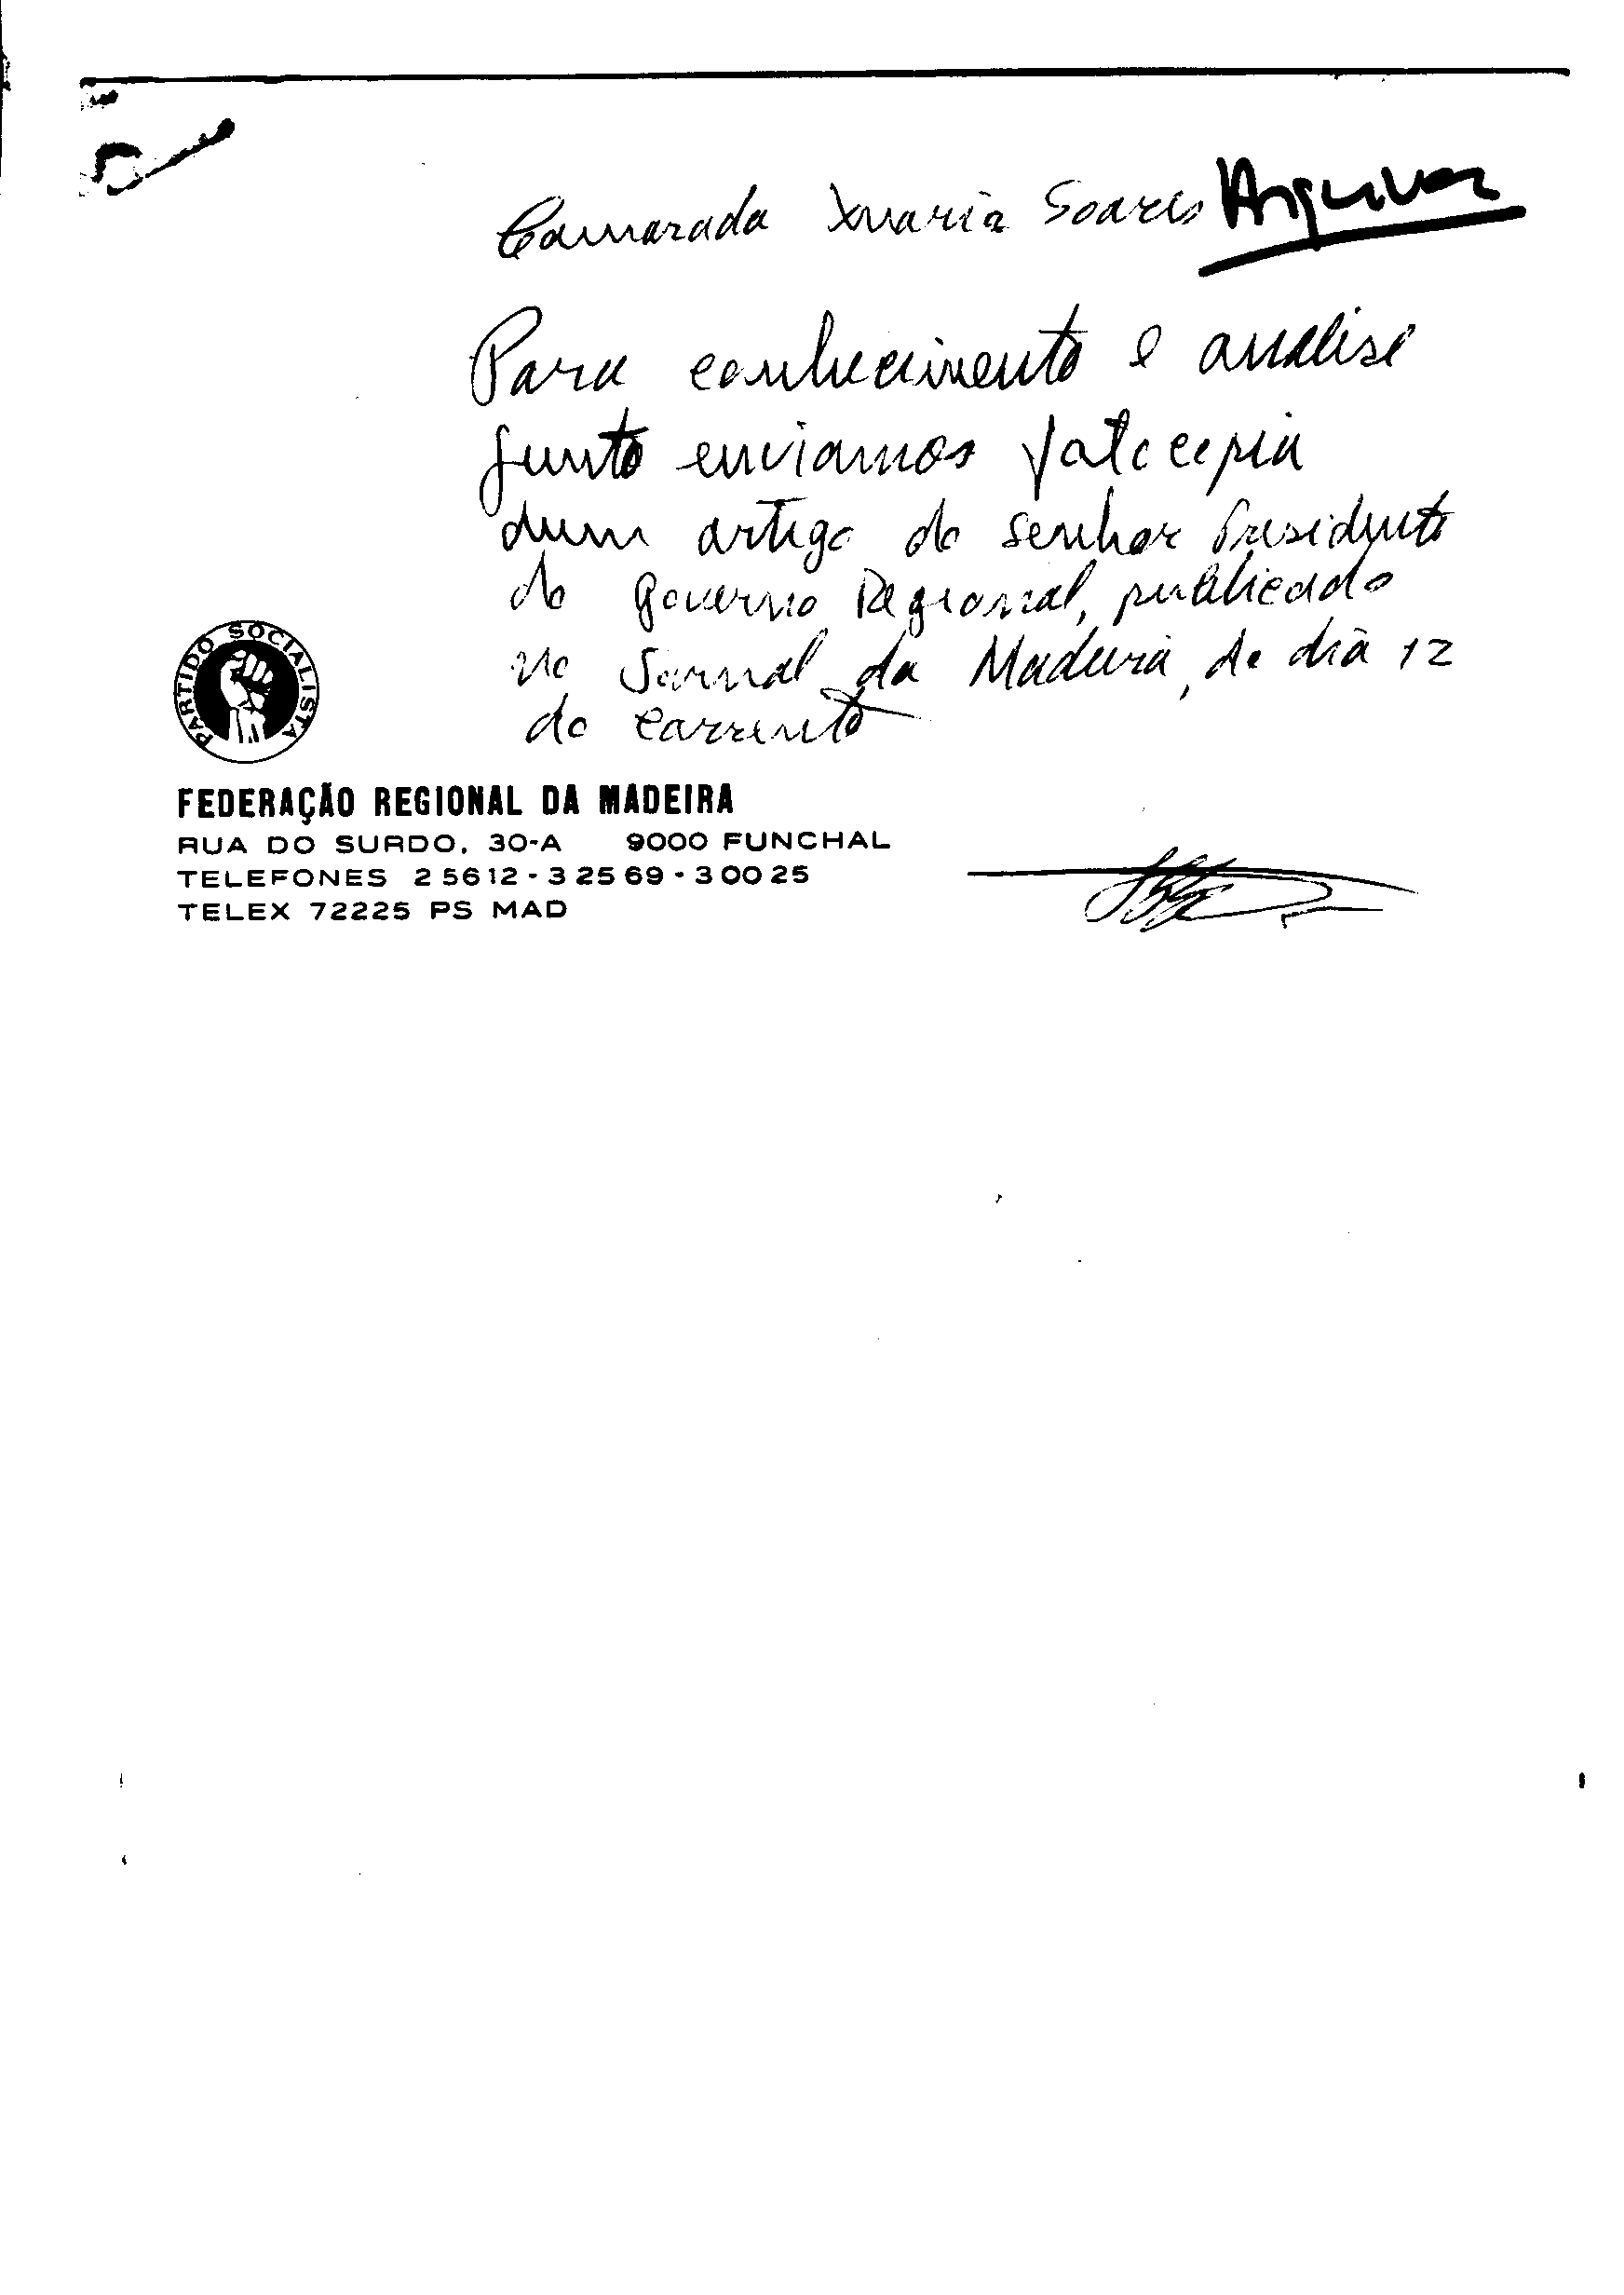 Camarada Mário Soares Arquivar
Para conhecimento e analise
junto enviamos fotocopia
dum artigo do senhor Presidente
do Governo Regional, publicado
no Jornal da Madeira, de dia 12
do corrente
PARTIDO SOCIALISTA
FEDERAÇÃO REGIONAL DA MADEIRA
RUA DO SURDO, 30-A 9000 FUNCHAL
TELEFONES 2 56 12 - 3 25 69 - 3 00 25
TELEX 72225 PS MAD